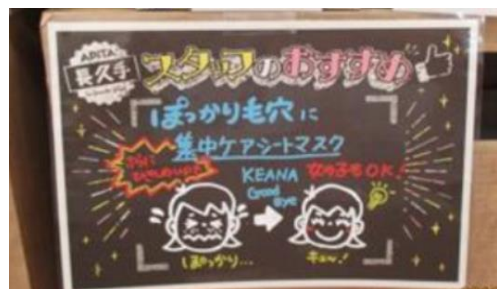 APITA
長久手
スタッフのおすすめ
ぽっかり毛穴に
集中ケアシートマスク
KEANA
Good
Bye
女の子もOK!
ぽっかり...
キュッ!